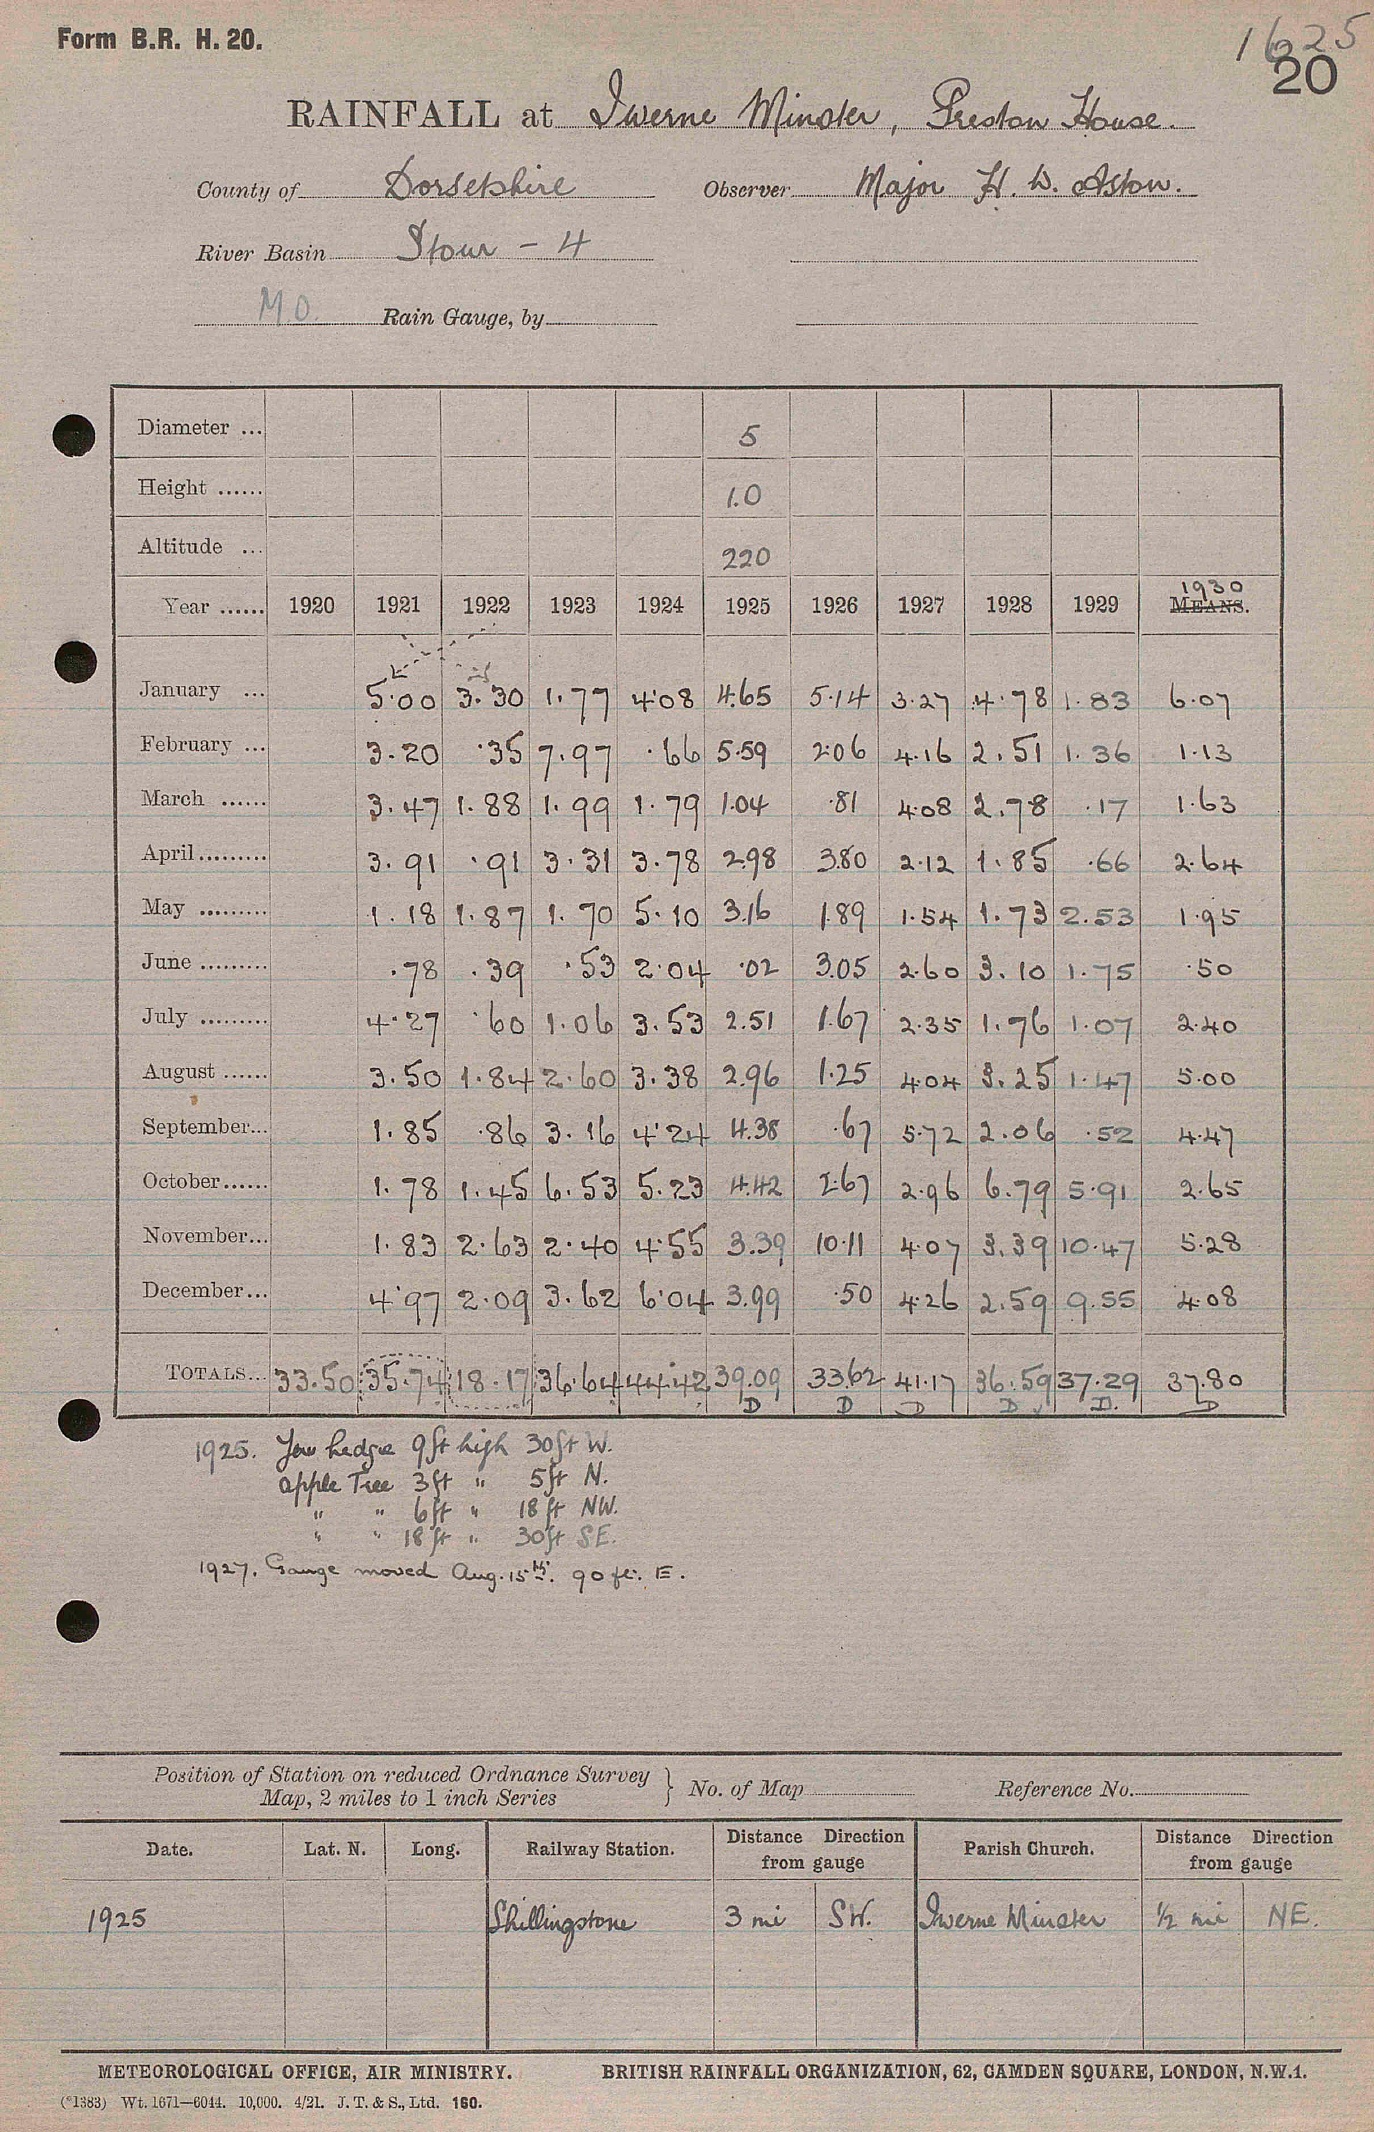 Form B.R. H. 20.
1625
20
RAINFALL at Iwerne Minster, Preston House.
County of Dorsetshire Observer Major H. D. Aston.
River Basin Stour – 4
M.O. Rain Gauge, by
Diameter ... 5
Height ...... 1.0
Altitude ... 220
1930
Year ...... 1920 1921 1922 1923 1924 1925 1926 1927 1928 1929 MEANS.
January ... 5.00 3.30 1.77 4.08 4.65 5.14 3.27 4.78 1.83 6.07
February ... 3.20 .35 7.97 .66 5.59 2.06 4.16 2.51 1.36 1.13
March ...... 3.47 1.88 1.99 1.79 1.04 .81 4.08 2.78 .17 1.63
April......... 3.91 .91 3.31 3.78 2.98 3.80 2.12 1.85 .66 2.64
May ......... 1.18 1.87 1.70 5.10 3.16 1.89 1.54 1.73 2.53 1.95
June ......... .78 .39 .53 2.04 .02 3.05 2.60 3.10 1.75 .50
July ......... 4.27 .60 1.06 3.53 2.51 1.67 2.35 1.76 1.07 2.40
August ...... 3.50 1.84 2.60 3.38 2.96 1.25 4.04 3.25 1.47 5.00
September... 1.85 .86 3.16 4.24 4.38 .67 5.72 2.06 .52 4.47
October...... 1.78 1.45 6.53 5.23 4.42 2.67 2.96 6.79 5.91 2.65
November... 1.83 2.63 2.40 4.55 3.39 10.11 4.07 3.39 10.47 5.28
December... 4.97 2.09 3.62 6.04 3.99 .50 4.26 2.59 9.55 4.08
TOTALS... 33.50 35.74 18.17 36.64 44.42 39.09 33.62 41.17 36.59 37.29 37.80
D D D D D. D
1925. Yew hedge 9ft high 30ft W.
apple Tree 3ft " 5ft N.
" " 6ft " 18ft NW.
" " 18ft " 30ft SE.
1927. Gauge moved Aug. 15th. 90 ft. E.
Position of Station on reduced Ordnance Survey
Map, 2 miles to 1 inch Series } No. of Map Reference No.
Date. Lat. N. Long. Railway Station. Distance Direction from gauge Parish Church. Distance Direction from gauge
1925 Shillingstone 3 mi SW. Iwerne Minster ½ mi NE.
METEOROLOGICAL OFFICE, AIR MINISTRY. BRITISH RAINFALL ORGANIZATION, 62, CAMDEN SQUARE, LONDON, N.W.1.
(*1383) Wt. 1671—6044. 10,000. 4/21. J. T. & S., Ltd. 160.